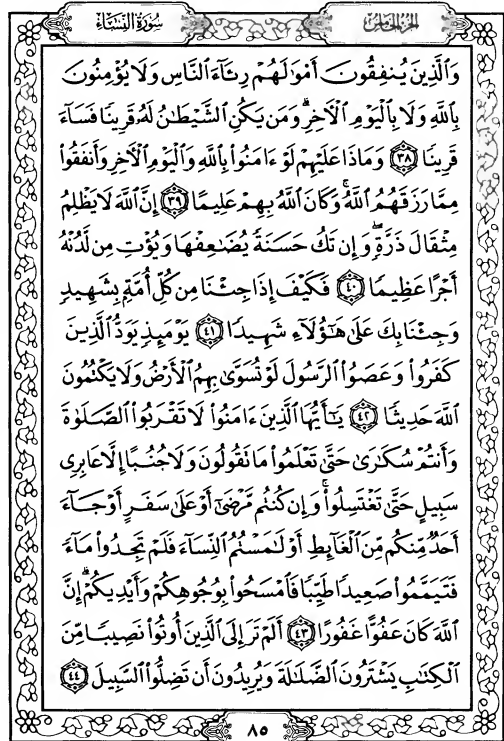 سُورَةُ النِّسَاءِ
الجزء الخامس
وَالَّذِينَ يُنفِقُونَ أَمْوَٰلَهُمْ رِئَآءَ النَّاسِ وَلَا يُؤْمِنُونَ
بِاللَّهِ وَلَا بِالْيَوْمِ الْأَخِرِ ۗ وَمَن يَكُنِ الشَّيْطَٰنُ لَهُۥ قَرِينًا فَسَآءَ
قَرِينًا ٣٨ وَمَاذَا عَلَيْهِمْ لَوْ ءَامَنُوا۟ بِاللَّهِ وَالْيَوْمِ الْأَخِرِ وَأَنفَقُوا۟
مِمَّا رَزَقَهُمُ اللَّهُ ۚ وَكَانَ اللَّهُ بِهِمْ عَلِيمًا ٣٩ إِنَّ اللَّهَ لَا يَظْلِمُ
مِثْقَالَ ذَرَّةٍ ۖ وَإِن تَكُ حَسَنَةً يُضَٰعِفْهَا وَيُؤْتِ مِن لَّدُنْهُ
أَجْرًا عَظِيمًا ٤٠ فَكَيْفَ إِذَا جِئْنَا مِن كُلِّ أُمَّةٍۭ بِشَهِيدٍ
وَجِئْنَا بِكَ عَلَىٰ هَٰٓؤُلَآءِ شَهِيدًا ٤١ يَوْمَئِذٍ يَوَدُّ الَّذِينَ
كَفَرُوا۟ وَعَصَوُا۟ الرَّسُولَ لَوْ تُسَوَّىٰ بِهِمُ الْأَرْضُ وَلَا يَكْتُمُونَ
اللَّهَ حَدِيثًا ٤٢ يَٰٓأَيُّهَا الَّذِينَ ءَامَنُوا۟ لَا تَقْرَبُوا۟ الصَّلَوٰةَ
وَأَنتُمْ سُكَٰرَىٰ حَتَّىٰ تَعْلَمُوا۟ مَا تَقُولُونَ وَلَا جُنُبًا إِلَّا عَابِرِى
سَبِيلٍ حَتَّىٰ تَغْتَسِلُوا۟ ۚ وَإِن كُنتُم مَّرْضَىٰٓ أَوْ عَلَىٰ سَفَرٍ أَوْ جَآءَ
أَحَدٌ مِّنكُم مِّنَ الْغَآئِطِ أَوْ لَٰمَسْتُمُ النِّسَآءَ فَلَمْ تَجِدُوا۟ مَآءً
فَتَيَمَّمُوا۟ صَعِيدًا طَيِّبًا فَامْسَحُوا۟ بِوُجُوهِكُمْ وَأَيْدِيكُمْ ۗ إِنَّ
اللَّهَ كَانَ عَفُوًّا غَفُورًا ٤٣ أَلَمْ تَرَ إِلَى الَّذِينَ أُوتُوا۟ نَصِيبًا مِّنَ
الْكِتَٰبِ يَشْتَرُونَ الضَّلَٰلَةَ وَيُرِيدُونَ أَن تَضِلُّوا۟ السَّبِيلَ ٤٤
٨٥